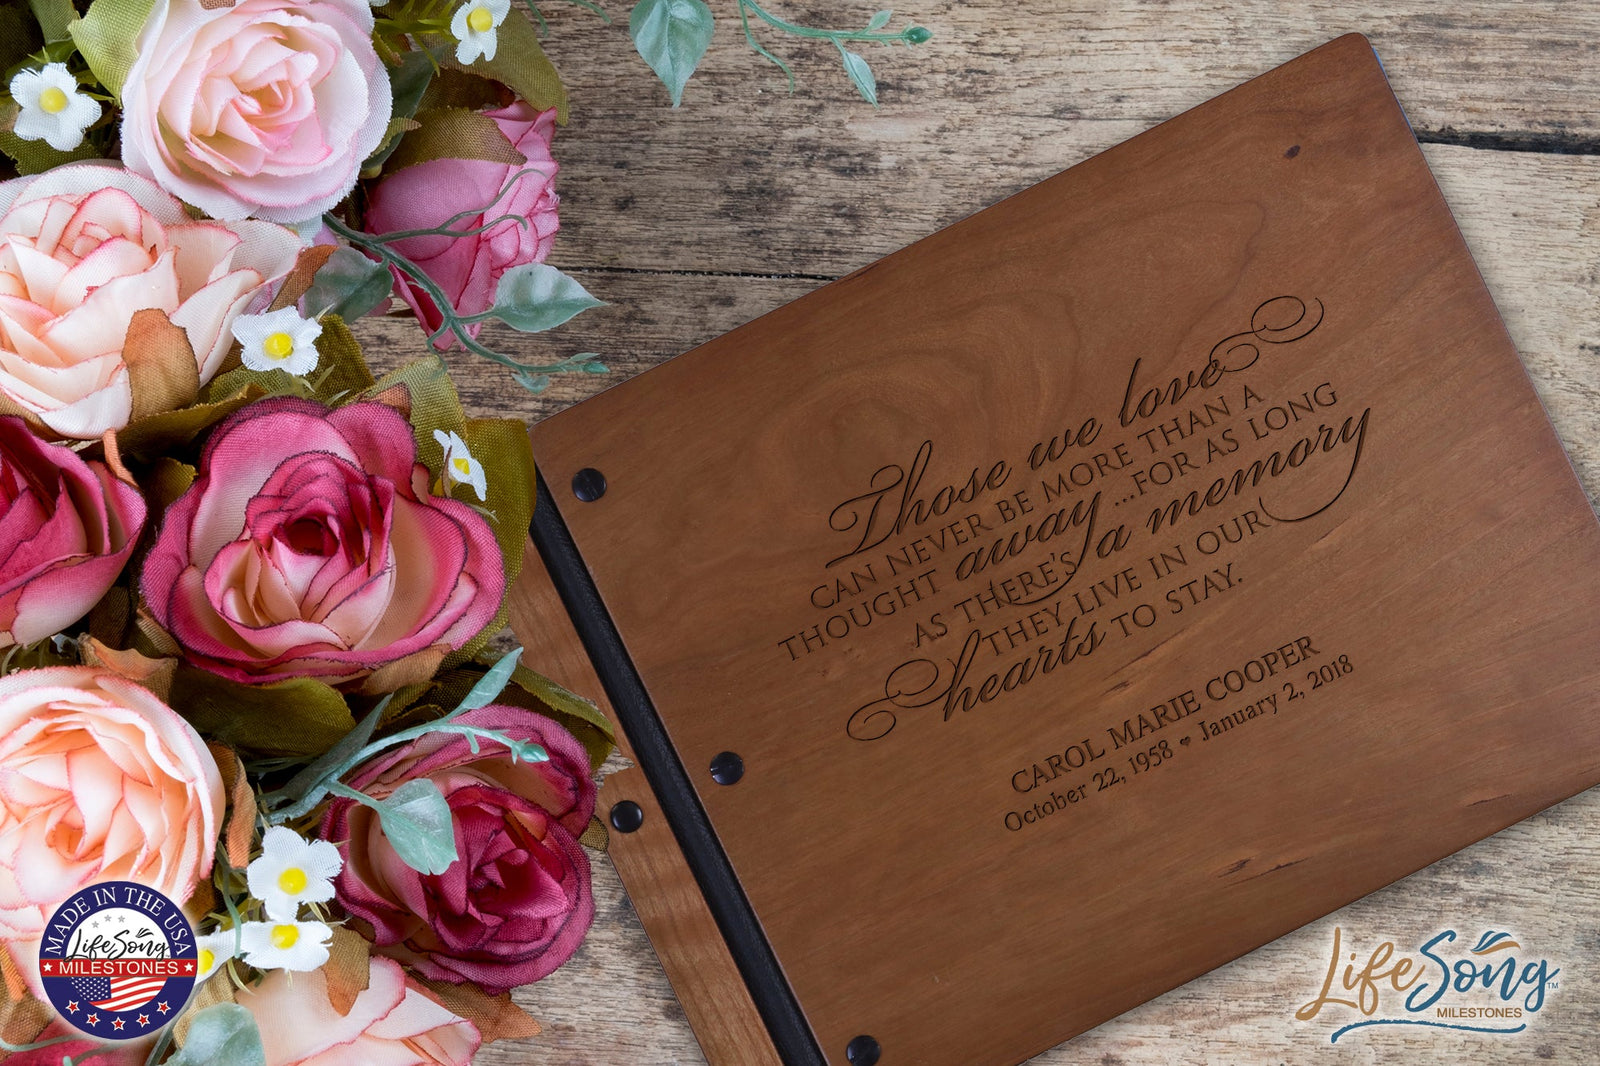 Those we love
CAN NEVER BE MORE THAN A
THOUGHT away ...FOR AS LONG
AS THERE'S a memory
THEY LIVE IN OUR
hearts TO STAY.
CAROL MARIE COOPER
October 22, 1958 ❤ January 2, 2018
MADE IN THE USA
LifeSong
MILESTONES
LifeSong™
MILESTONES